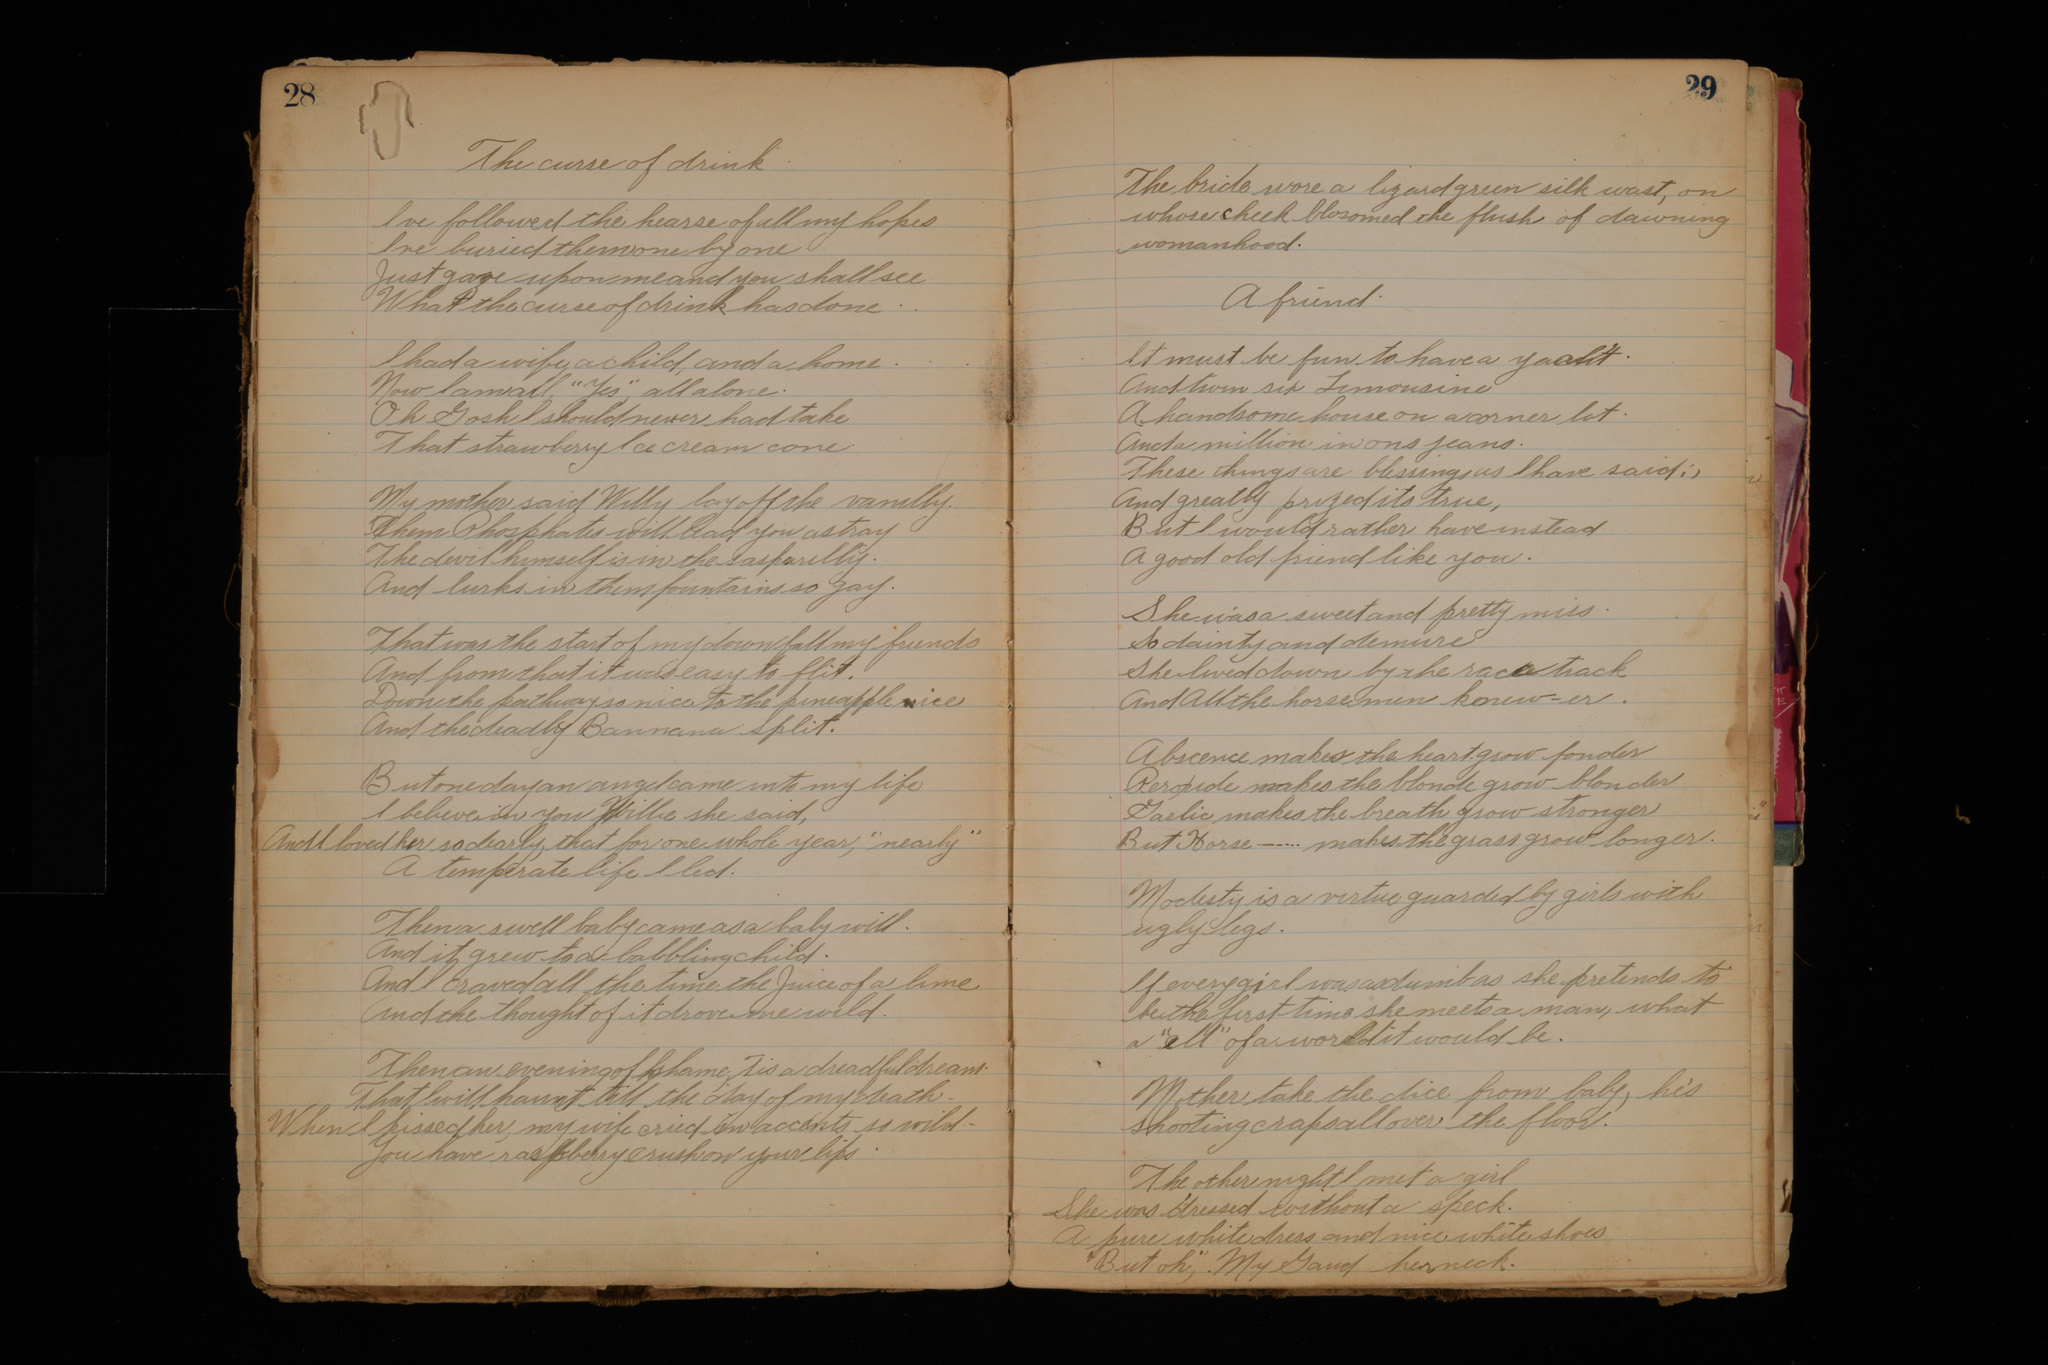 28
The curse of drink
I've followed the hearse of all my hopes
I've buried them one by one
Just gaze upon me and you shall see
What the curse of drink has done.
I had a wife, a child, and a home.
Now I am all, "Yes", all alone.
Oh Gosh I should never had take
That strawberry Ice cream cone
My mother said Willy lay off the vanilly.
Them Phosphates will lead you astray
The devil himself is in the sasparilly.
And lurks in them fountains so gay.
That was the start of my downfall my friends
And from that it was easy to flit.
Down the pathway so nice to the pineapple ice
And the deadly Bannana split.
But one day an angel came into my life
I believe in you Willie she said,
And I loved her so dearly, that for one whole year, "nearly"
A temperate life I led.
Then a swell baby came as a baby will.
And it grew to a babbling child.
And I craved all the time the Juice of a lime
And the thought of it drove me wild.
Then an evening of shame, Tis a dreadful dream.
That will haunt till the day of my death.
When I kissed her, my wife cried in accents so wild-
You have raspberry crush on your lips.
29
The bride wore a lizard green silk wast, on
whose cheek blosomed the flush of dawning
womanhood.
A friend.
It must be fun to have a yacht.
And twin six Limousine
A handsome house on a corner lot.
And a million in ons jeans.
These things are blessings, as I have said;
And greatly prized its true,
But I would rather have instead
A good old friend like you.
She was a sweet and pretty miss.
So dainty and demure
She lived down by the race track
And All the horsemen knew-er.
Abscence makes the heart grow fonder
Peroxide makes the blonde grow blonder
Garlic makes the breath grow stronger
But Horse ----- makes the grass grow longer.
Modesty is a vertue guarded by girls with
ugly legs.
If every girl was as dumb as she pretends to
be the first time she meets a man, what
a "ell" of a world it would be.
Mother take the dice from baby, he's
shooting craps all over the floor.
The other night I met a girl
She was dressed without a speck.
A pure white dress and nice white shoes
"But oh", My Gaud her neck.